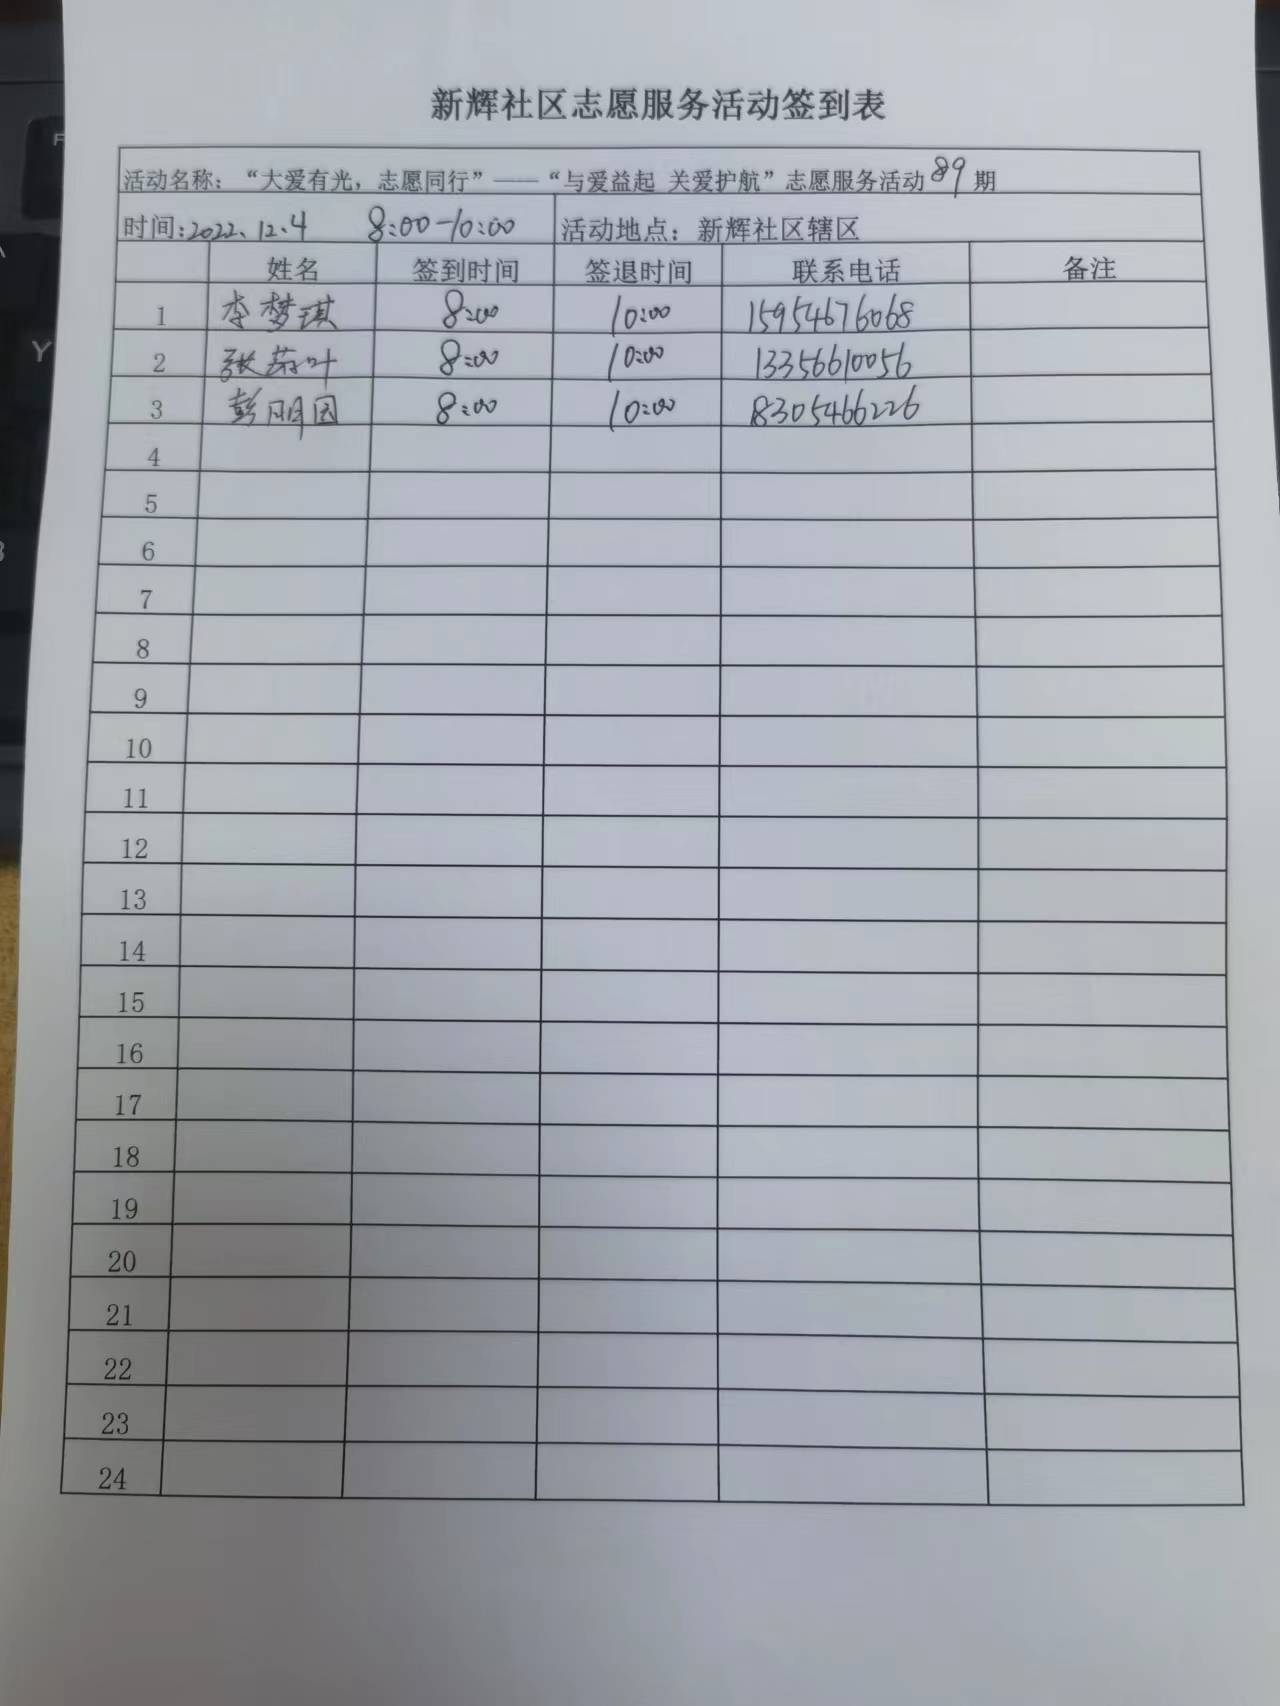 新辉社区志愿服务活动签到表
活动名称：“大爱有光，志愿同行”——“与爱益起 关爱护航”志愿服务活动89期
时间:2022.12.4 8:00-10:00 活动地点：新辉社区辖区
姓名 签到时间 签退时间 联系电话 备注
1 李梦琪 8:00 10:00 15954676068
2 张叶 8:00 10:00 13356610056
3 彭明 8:00 10:00 18305466226
4
5
6
7
8
9
10
11
12
13
14
15
16
17
18
19
20
21
22
23
24
F
A
Y